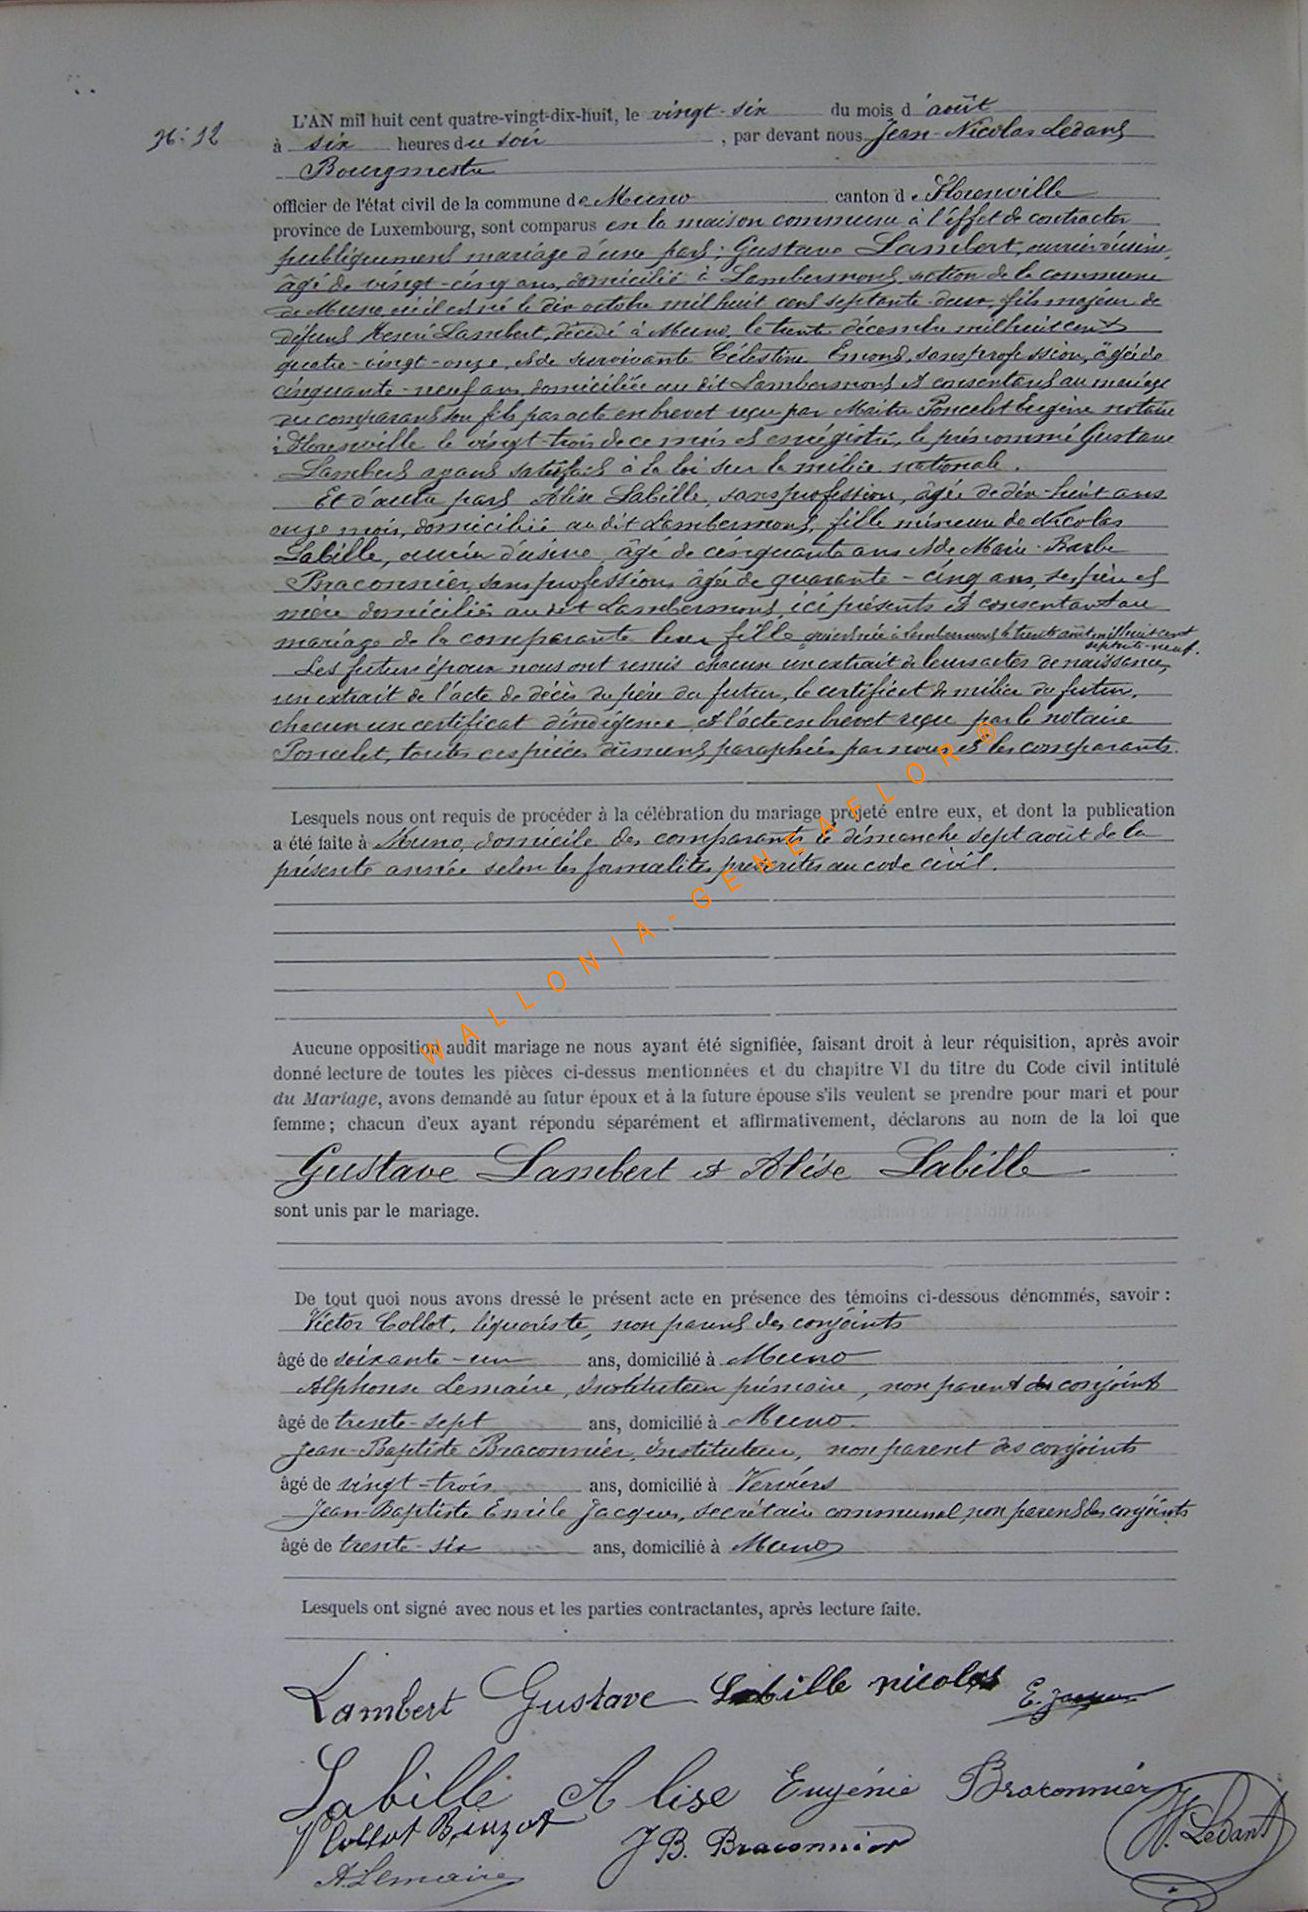 N: 12
L'AN mil huit cent quatre-vingt-dix-huit, le vingt-six du mois d'août
à six heures du soir, par devant nous Jean-Nicolas Ledant
Bourgmestre
officier de l'état civil de la commune de Muno canton de Florenville
province de Luxembourg, sont comparus en la maison commune à l'effet de contracter
publiquement mariage d'une part; Gustave Lambert, ouvrier d'usine,
âgé de vingt-cinq ans, domicilié à Lambermont, section de la commune
de Muno, où il est né le dix octobre mil huit cent septante-deux, fils majeur de
défunt Henri Lambert, décédé à Muno, le trente décembre mil huit cent
quatre-vingt-onze, et de survivante Célestine Emond, sans profession, âgée de
cinquante-neuf ans, domiciliée au dit Lambermont et consentant au mariage
du comparant son fils par acte en brevet reçu par Maître Poncelet Eugène notaire
à Florenville le vingt-trois de ce mois et enrégistré, le prénommé Gustave
Lambert ayant satisfait à la loi sur la milice nationale.
Et d'autre part Alise Labille, sans profession, âgée de dix-huit ans
onze mois, domiciliée au dit Lambermont, fille mineure de Nicolas
Labille, ouvrier d'usine, âgé de cinquante ans et de Marie-Barbe
Braconnier, sans profession, âgée de quarante-cinq ans, ses père et
mère domiciliés au dit Lambermont, ici présents et consentant au
mariage de la comparante leur fille qui est née à Lambermont le trente août mil huit cent
septante-neuf.
Les futurs époux nous ont remis chacun un extrait de leurs actes de naissance,
un extrait de l'acte de décès du père du futur, le certificat de milice du futur,
chacun un certificat d'indigence et l'acte en brevet reçu par le notaire
Poncelet, toutes ces pièces dûment paraphées par nous et les comparants.
Lesquels nous ont requis de procéder à la célébration du mariage projeté entre eux, et dont la publication
a été faite à Muno, domicile des comparants le dimanche sept août de la
présente année selon les formalités prescrites au code civil.
WALLONIA-GENEAFLOR ®
Aucune opposition audit mariage ne nous ayant été signifiée, faisant droit à leur réquisition, après avoir
donné lecture de toutes les pièces ci-dessus mentionnées et du chapitre VI du titre du Code civil intitulé
du Mariage, avons demandé au futur époux et à la future épouse s'ils veulent se prendre pour mari et pour
femme; chacun d'eux ayant répondu séparément et affirmativement, déclarons au nom de la loi que
Gustave Lambert et Alise Labille
sont unis par le mariage.
De tout quoi nous avons dressé le présent acte en présence des témoins ci-dessous dénommés, savoir :
Victor Collot, liquoriste, non parent des conjoints
âgé de soixante-un ans, domicilié à Muno
Alphonse Lemaire, Instituteur primaire, non parent des conjoints
âgé de trente-sept ans, domicilié à Muno.
Jean-Baptiste Braconnier, Instituteur, non parent des conjoints
âgé de vingt-trois ans, domicilié à Verviers
Jean-Baptiste Emile Jacques, secrétaire communal, non parent des conjoints
âgé de trente-six ans, domicilié à Muno
Lesquels ont signé avec nous et les parties contractantes, après lecture faite.
Lambert Gustave Labille nicolas E. Jacques
Labille Alise Eugénie Braconnier
V Collot J.B. Braconnier N. Ledant
A Lemaire